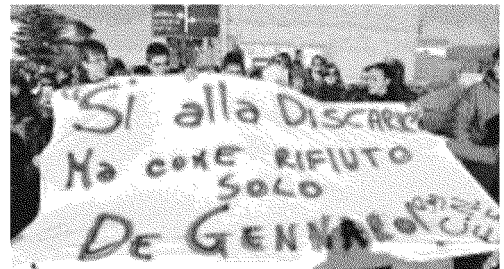 "Si alla DISCARICA
Ma COME RIFIUTO
SOLO
DE GENNARO